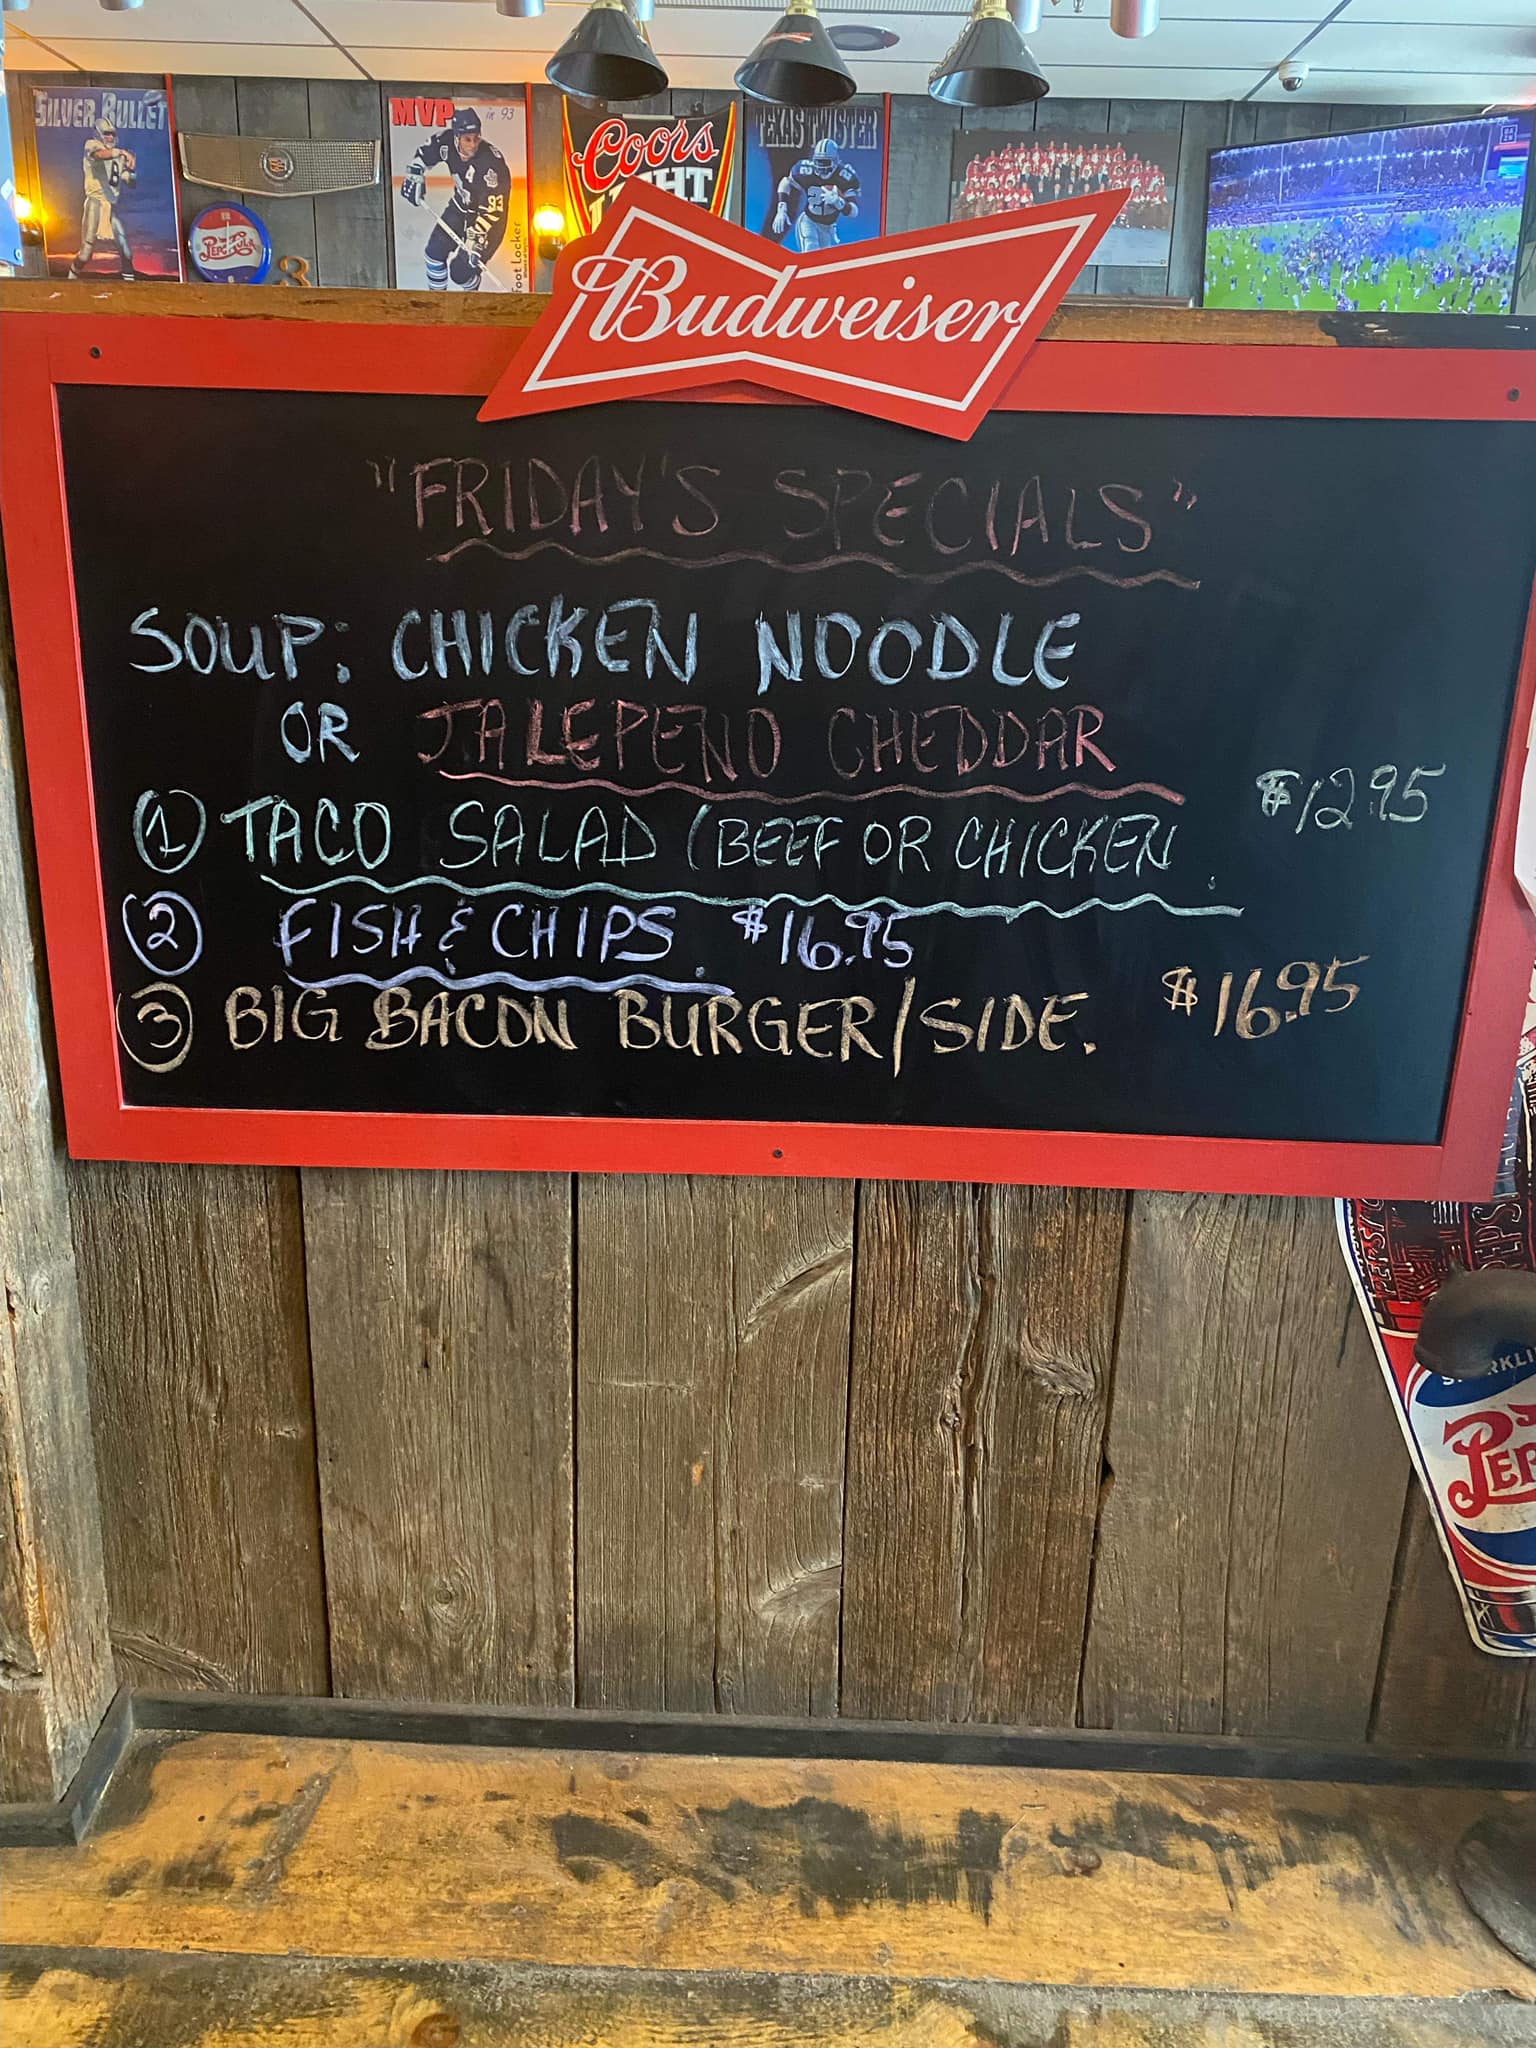 SILVER BULLET
MVP in 93
Foot Locker
Coors
LIGHT
TEXAS TWISTER
PEPSI-COLA
8
Budweiser
"FRIDAY'S SPECIALS"
SOUP: CHICKEN NOODLE
OR JALEPENO CHEDDAR
1 TACO SALAD (BEEF OR CHICKEN. $12.95
2 FISH & CHIPS. $16.95
3 BIG BACON BURGER/SIDE. $16.95